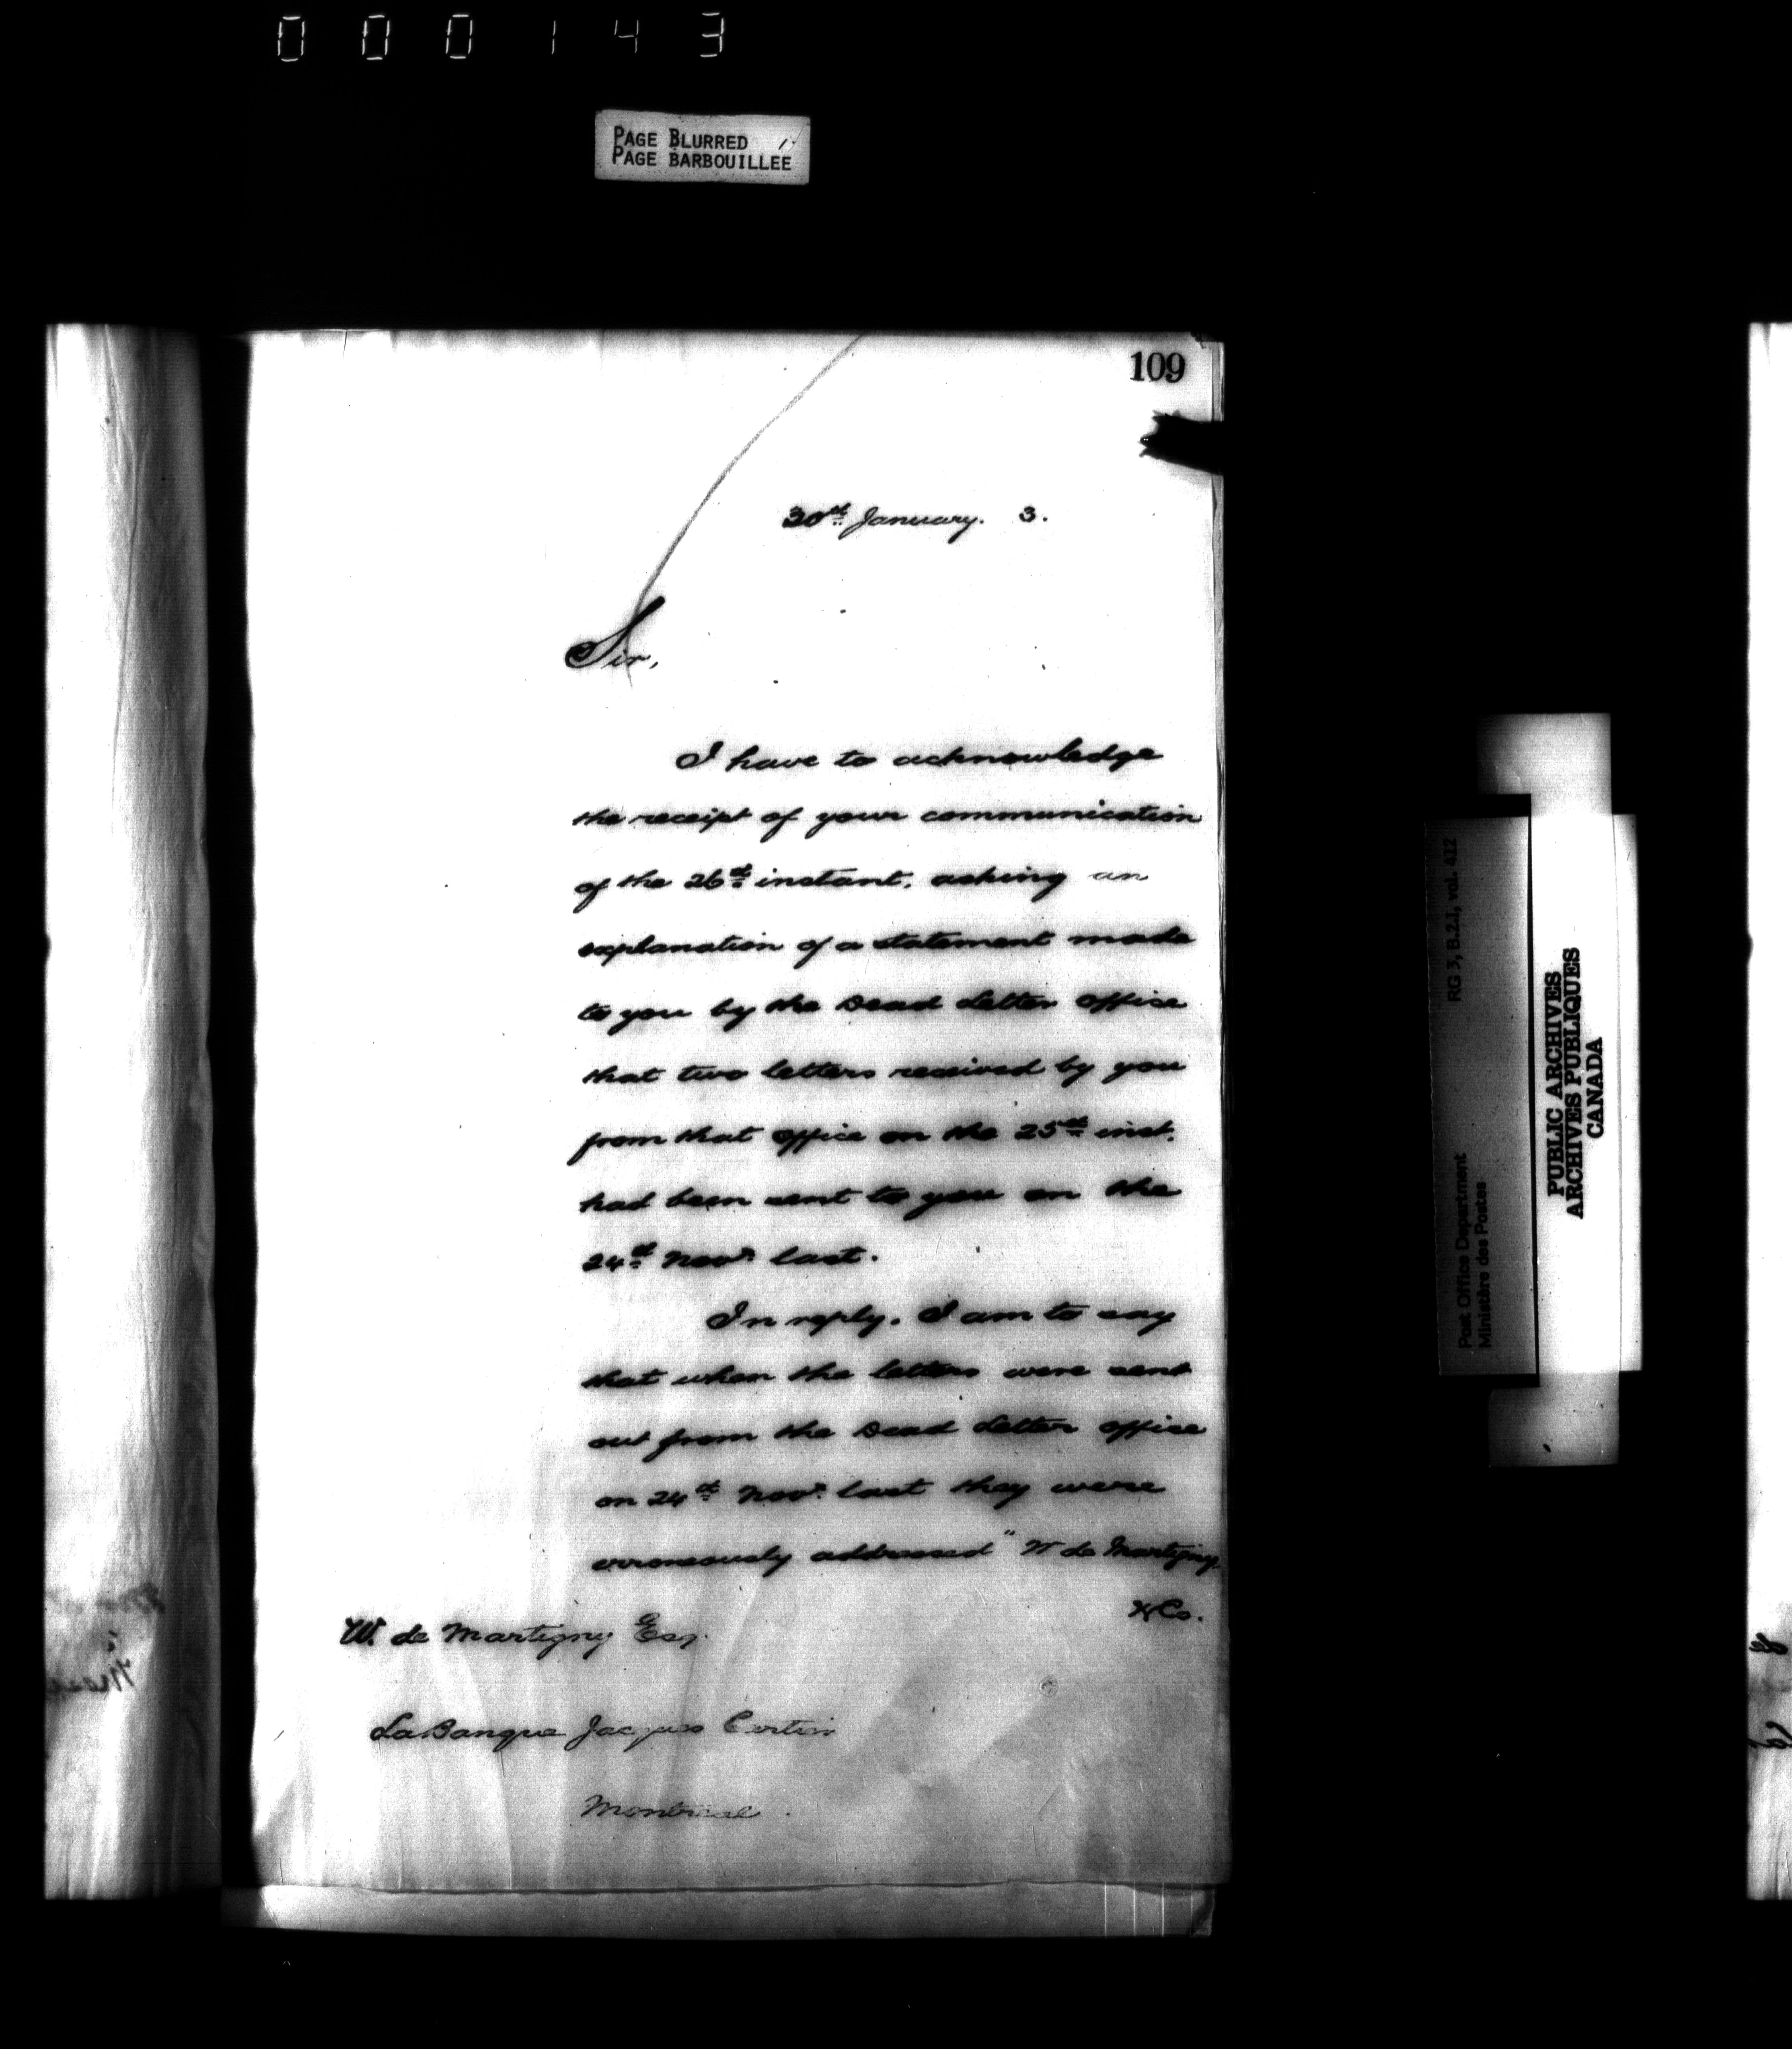 000143
PAGE BLURRED
PAGE BARBOUILLEE
109
30th January. 3.
Sir,
I have to acknowledge
the receipt of your communication
of the 26th instant, asking an
explanation of a statement made
to you by the Dead Letter Office
that two letters received by you
from that Office on the 25th inst.
had been sent to you on the
24th Novr. last.
In reply, I am to say
that when the letters were sent
out from the Dead Letter Office
on 24th Novr. last they were
erroneously addressed "W de Martigny
& Co.
W. de Martigny Esq.
La Banque Jacques Cartier
Montreal.
RG 3, B.2.1, vol. 412
Post Office Department
Ministère des Postes
PUBLIC ARCHIVES
ARCHIVES PUBLIQUES
CANADA